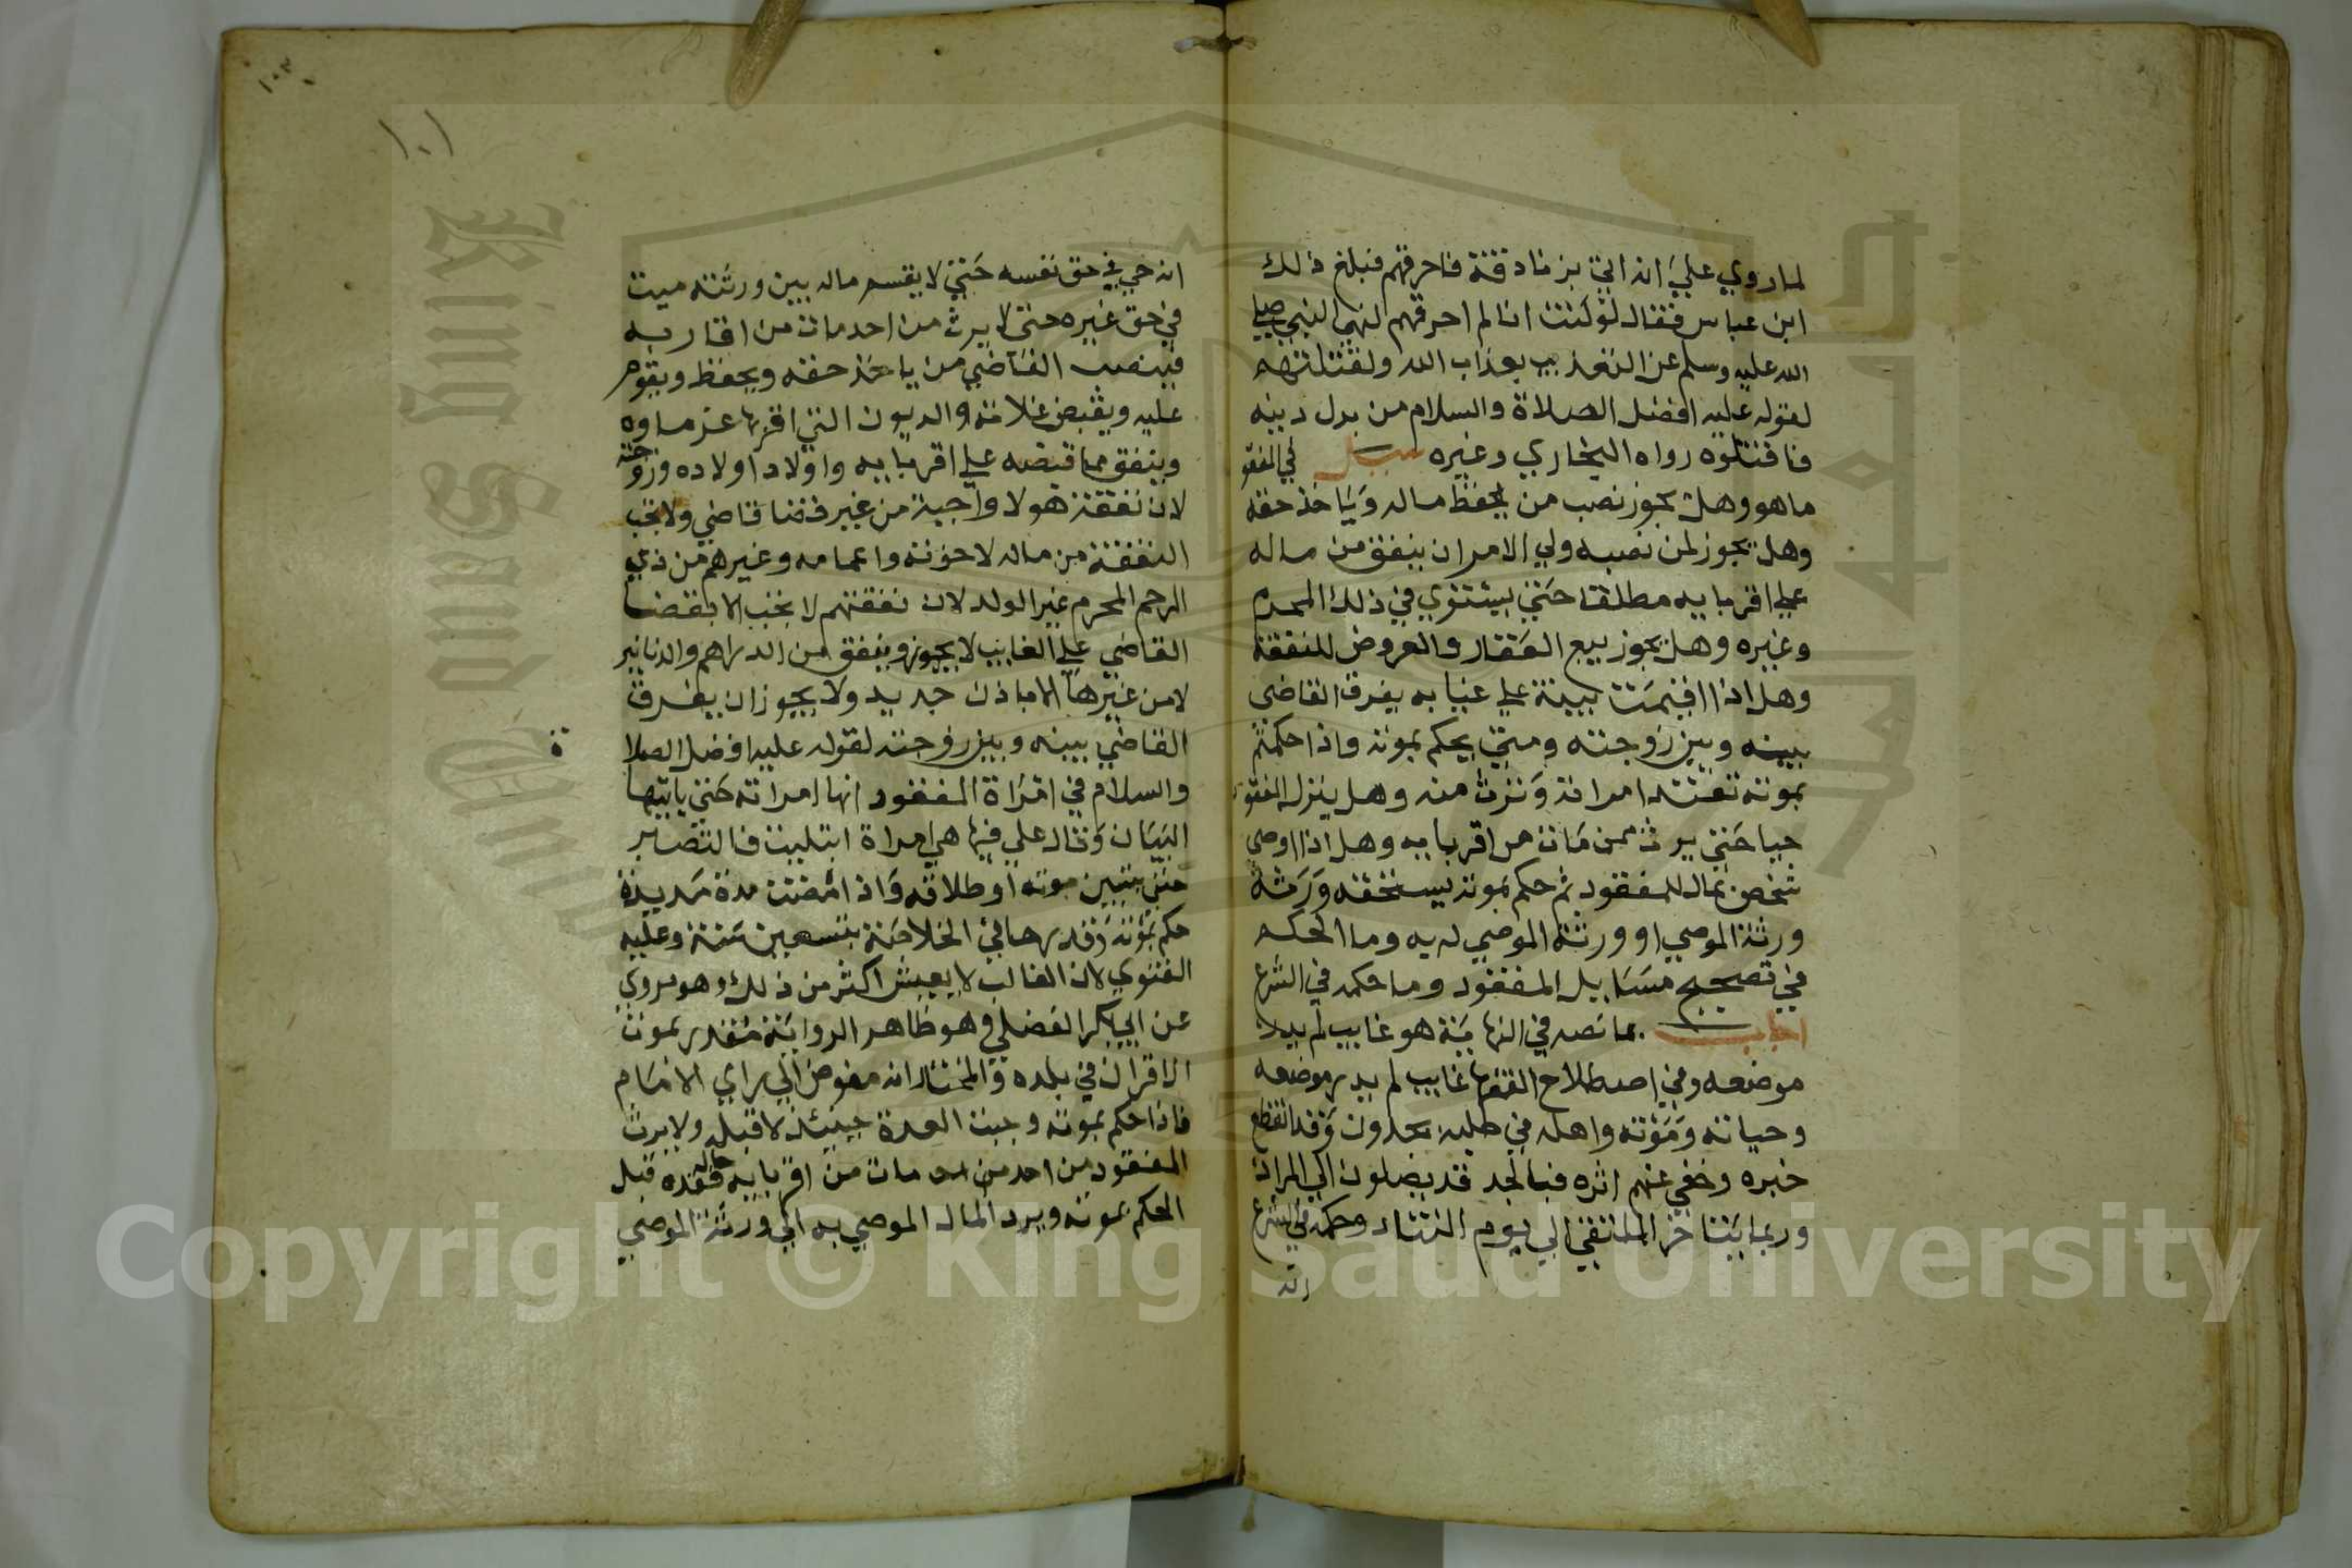 لما روي علي انه اتي بزنادقة فاحرقهم فبلغ ذلك
ابن عباس فقال لو كنت انا لم احرقهم لنهي النبي صلى
الله عليه وسلم عن التعذيب بعذاب الله ولقتلتهم
لقوله عليه افضل الصلاة والسلام من بدل دينه
فاقتلوه رواه البخاري وغيره سيل في المفقو
ما هو وهل يجوز نصب من يحفظ ماله وياخذ حقه
وهل يجوز لمن نصبه ولي الامر ان ينفق من ماله
علي اقربايه مطلقا حتي يستوي في ذلك المحرم
وغيره وهل يجوز بيع العقار والعروض للنفقة
وهل اذا اقيمت بينة علي غيابه يفرق القاضي
بينه وبين زوجته ومتي يحكم بموته واذا حكمتم
بموته تعتد امراته وترث منه وهل ينزل المفقود
حيا حتي يرث ممن مات من اقربايه وهل اذا اوصي
شخص بمال للمفقود ثم حكم بموته يستحقه ورثه
ورثة الموصي او ورثة الموصي له به وما الحكم
في تصحيح مسايل المفقود وما حكمه في الشرع
اجاب بما نصه في النهاية هو غايب لم يدر
موضعه وفي اصطلاح الفقها غايب لم يدر موضعه
وحياته وموته واهله في طلبه يجدون وقد انقطع
خبره وخفي عنهم اثره فبالجد قد يصلون الي المراد
وربما يتاخر الملتقي الي يوم التناد وحكمه في الشرع
انه
١٠٣
١٠١
انه حي في حق نفسه حتي لا يقسم ماله بين ورثته ميت
في حق غيره حتي لا يرث من احد مات من اقاربه
فينصب القاضي من ياخذ حقه ويحفظ ويقوم
عليه ويقبض غلاته والديون التي اقر بها غرماوه
وينفق مما قبضه علي اقربايه واولاد اولاده وزوجته
لان نفقة هولا واجبة من غير قضا قاضي ولا تجب
النفقة من ماله لاخوته واعمامه وغيرهم من ذي
الرحم المحرم غير الولد لان نفقتهم لا تجب الا بقضا
القاضي علي الغايب لا يجوز وينفق من الدراهم والدنانير
لا من غيرها الا باذن جديد ولا يجوز ان يفرق
القاضي بينه وبين زوجته لقوله عليه افضل الصلاة
والسلام في امراة المفقود انها امراته حتي ياتيها
البيان وقال علي فيها هي امراة ابتليت فالتصبر
حتي يتبين موته او طلاقه واذا مضت مدة مديدة
حكم بموته وقدرها في الخلاصة بتسعين سنة وعليه
الفتوي لان الغالب لا يعيش اكثر من ذلك وهو مروي
عن ابي بكر الفضلي وهو ظاهر الرواية مقدر بموت
الاقران في بلده والمختار انه مفوض الي راي الامام
فاذا حكم بموته وجبت العدة حينئذ لا قبله ولا يرث
المفقود من احد من مات من اقربايه حال فقده قبل
الحكم بموته ويرد المال الموصي به الي ورثة الموصي
Copyright © King Saud University